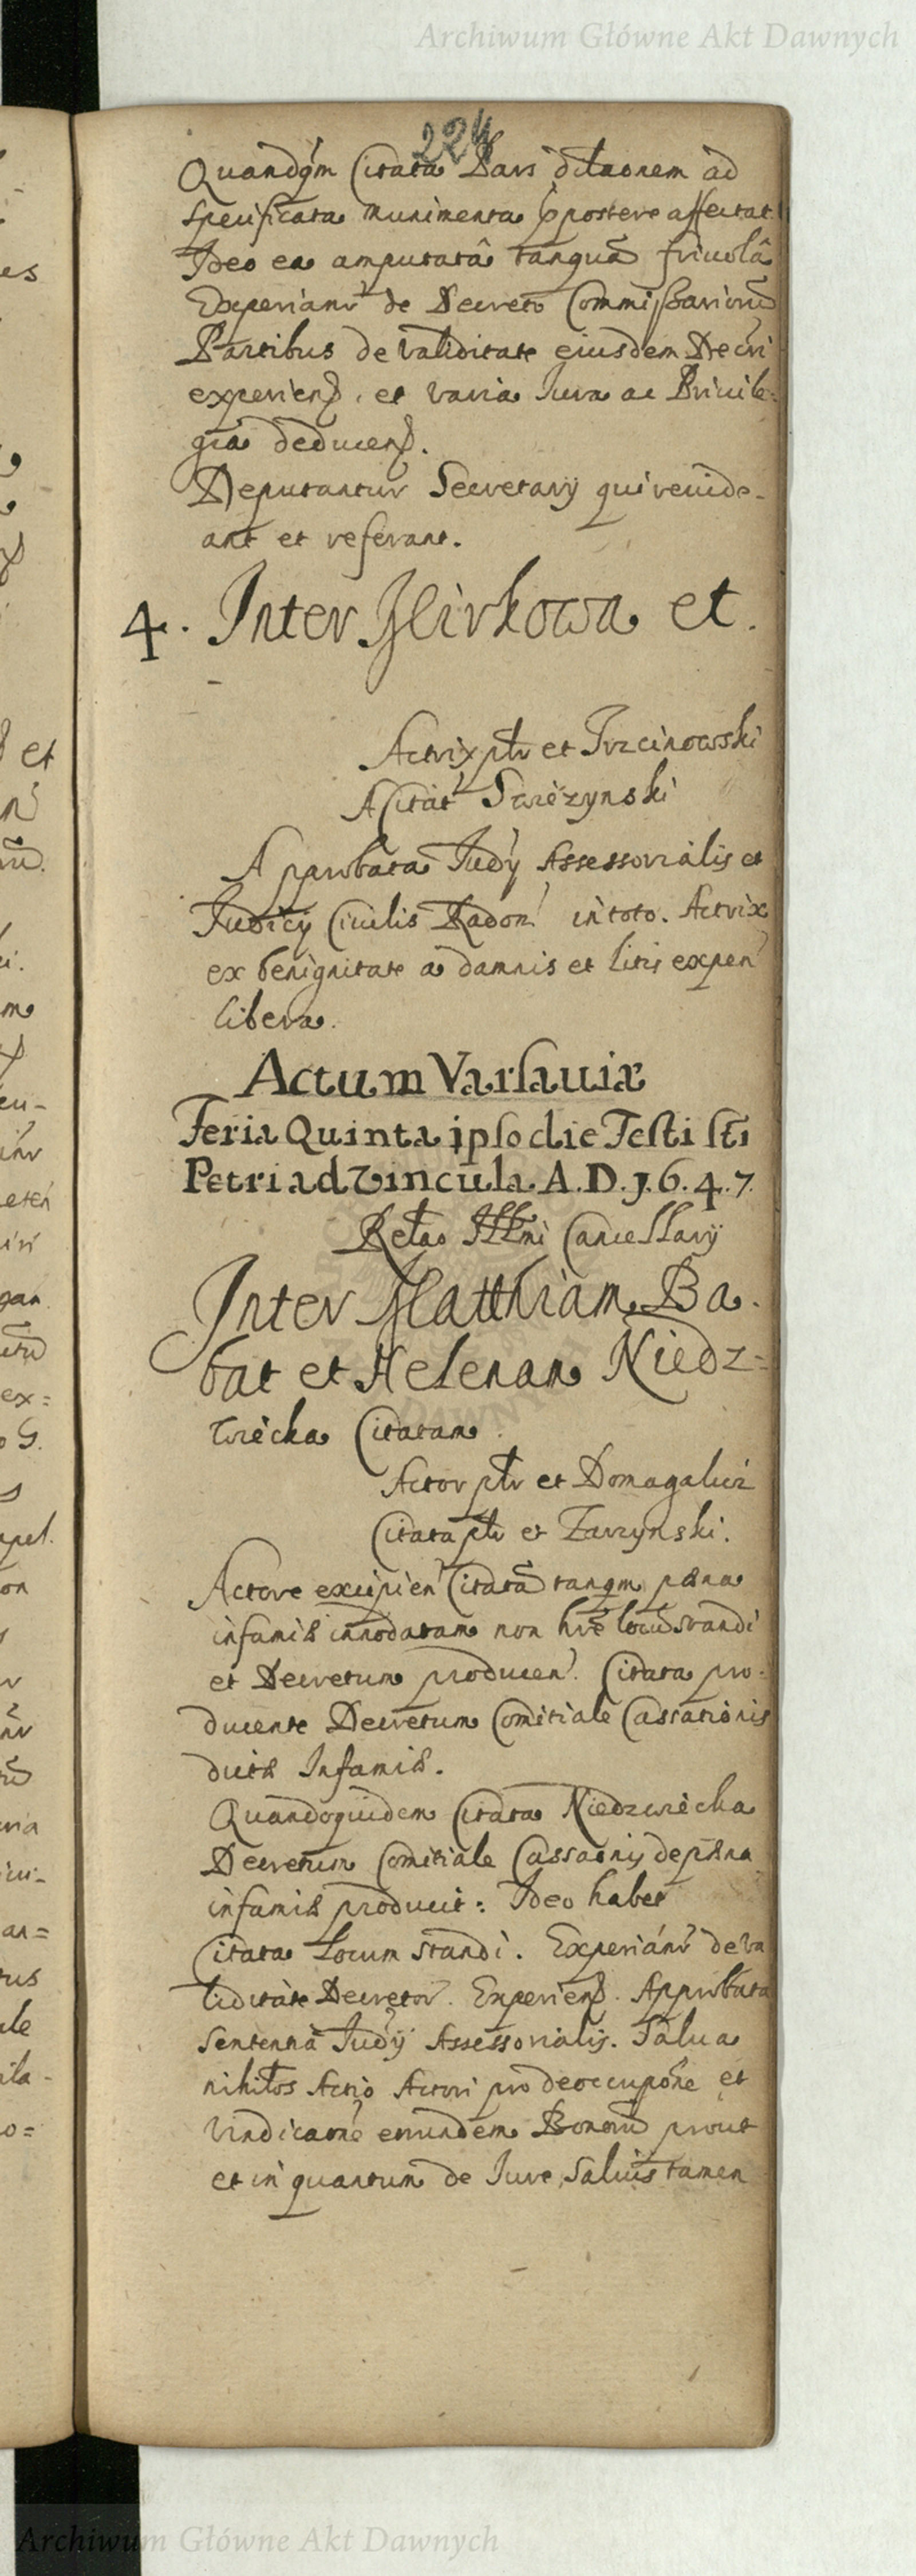 Archiwum Główne Akt Dawnych
224
Quandqm Citata Pars dilaonem ad
Specificata munimenta cpponere affectat
Ideo ea amputatâ tanquã friuolâ
Experianr de Decreto Commissariorũ
Partibus de validitate eiusdem Decri
experien, et varia Iura ac Priuile-
gia deducen.
Deputantur Secretarij qui reuide-
ant et referant.
4. Inter Mirkowa et.
Actrix plr et Trzcinowski
A Citat Swiezynski
Approbata Judij Assessorialis et
Judicij Ciuilis Radon in toto. Actrix
ex benignitate a damnis et litis expen
libera.
Actum Varsauiæ
Feria Quinta ipso die Festi sti
Petri ad Vincula A.D. 1.6.4.7.
Relao Illmi Cancellarij
Inter Matthiam Ba-
bat et Helenam Niedz=
wiecka Citatam.
Actor plr et Domagalicz
Citata plr et Zarzynski.
Actore excipien Citatã tanqm pæna
infamiæ innodatam non hre locũ standi
et Decretum producen. Citata pro-
ducente Decretum Comitiale Cassationis
dictæ Infamiæ.
Quandoquidem Citata Niedzwiecka
Decretum Comitiale Cassaonis de pæna
infamiæ producit: Ideo habet
Citata Locum standi. Experianr de va
liditate Decretor. Experien. Approbata
Sententia Judij Assessorialis. Salua
nihilos Actio Actori pro deoccupone et
vindicaone eorundem Bonorũ prout
et in quantum de Iure, Saluis tamen
Archiwum Główne Akt Dawnych